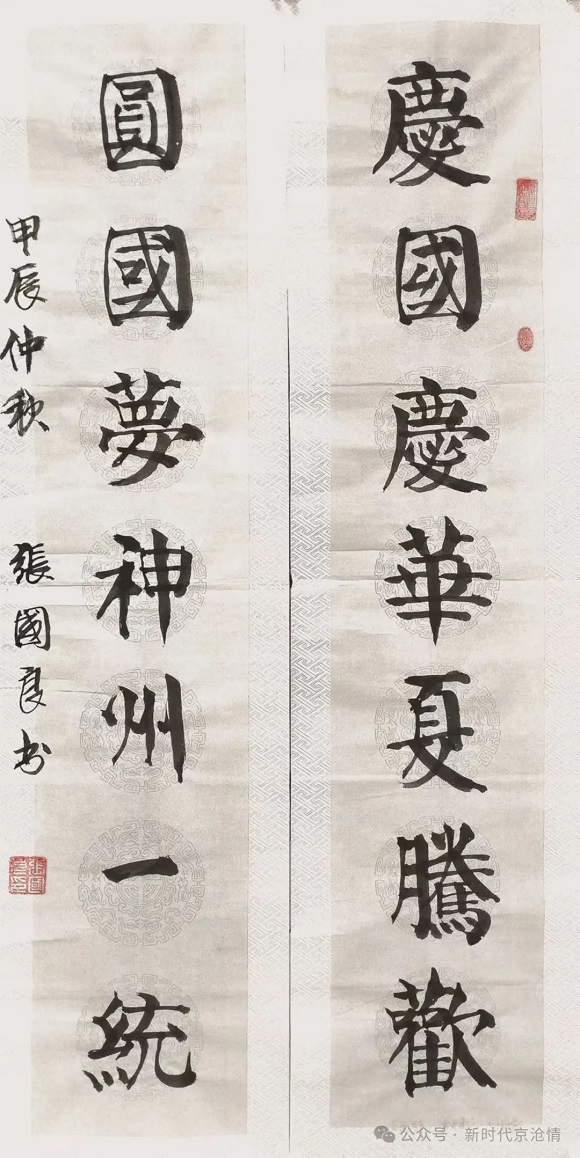 慶國慶華夏騰歡
圓國夢神州一統
甲辰仲秋 張國良书
公众号·新时代京沧情